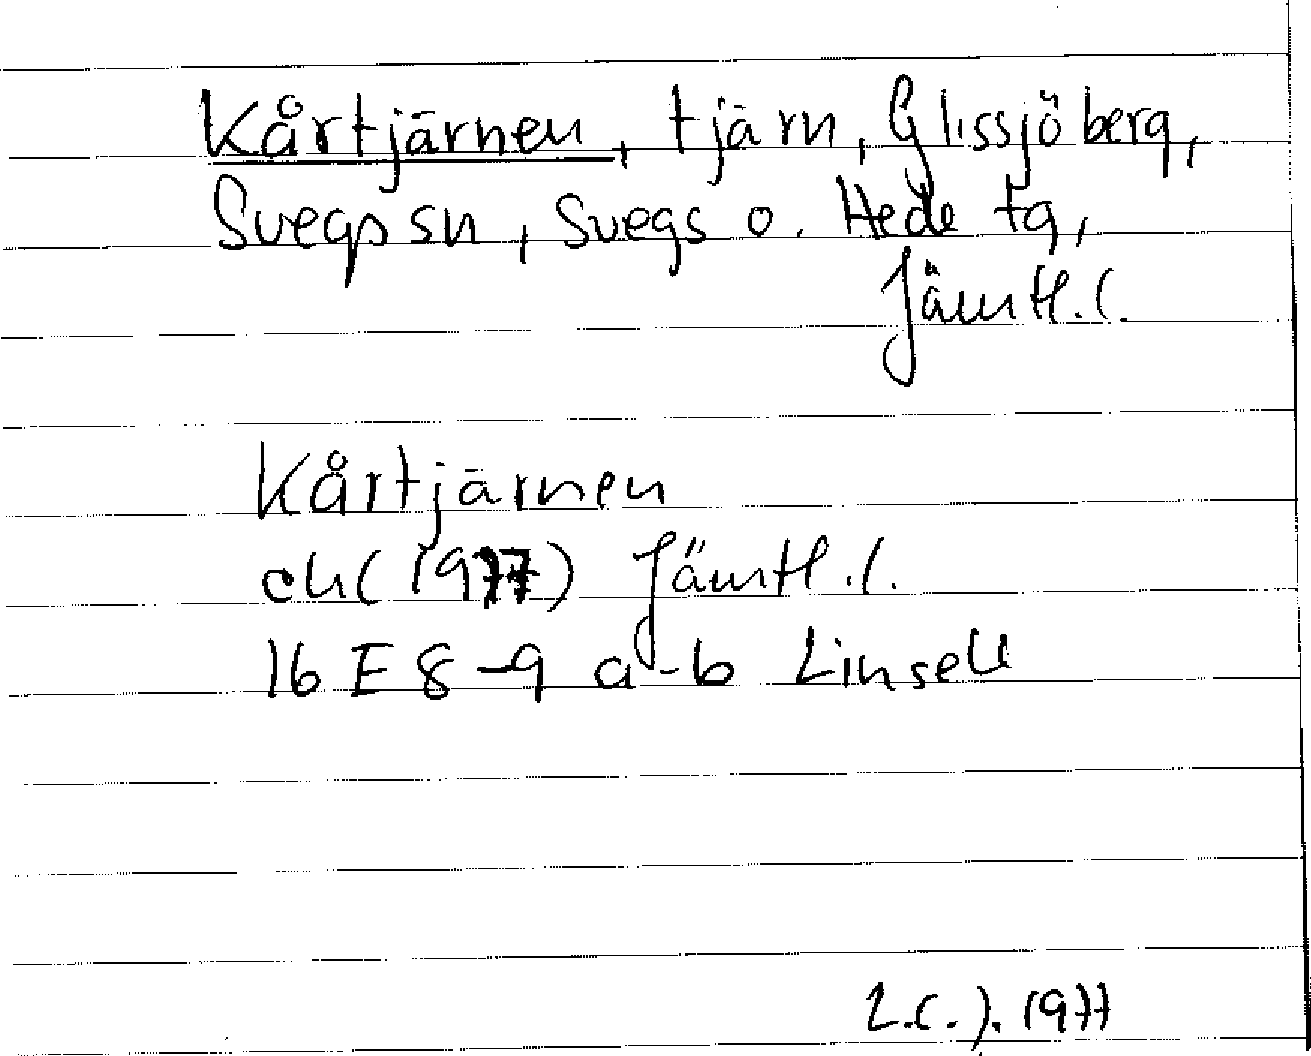 Kårtjärnen, tjärn, Glissjöberg,
Svegs sn, Svegs o. Hede tg,
Jämtl. l.
Kårtjärnen
ek (1977) Jämtl. l.
16 E 8-9 a-b Linsell
1977